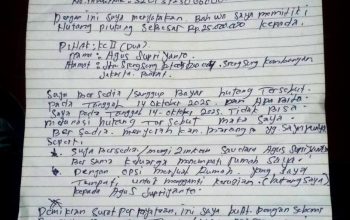 Dengan ini saya menyatakan, Bahwa saya memiliki
Hutang piutang sebesar Rp 25.000.000 kepada
PIHAK KE II (DUA)
Nama : Agus Supriyanto
Alamat : Jln Srengseng Srengseng Kembangan
Jakarta Barat.
Saya bersedia/sanggup Bayar hutang Tersebut
pada Tanggal 14 Oktober 2025. Dan Apabila
Saya pada Tanggal 14 Oktober 2025. Tidak Bisa
hutang Tersebut, maka saya
Bersedia, menyerahkan yg saya
Seperti
Saya bersedia/mengizinkan Saudara Agus Supriyanto
Bersama keluarga menempati rumah Saya.
Dengan opsi menjual Rumah yang saya
Tempati, untuk mengganti kerugian (hutang saya)
kepada Agus Supriyanto
Demikian Surat Pernyataan, ini saya buat. Dengan sebenar